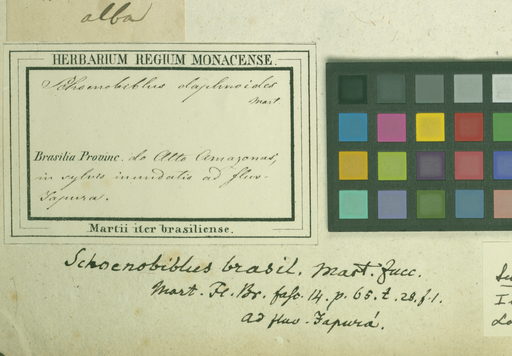 alba
HERBARIUM REGIUM MONACENSE.
Schoenobiblus daphnoides
Mart
Brasilia Provinc. do Alto Amazonas,
in sylvis inundatis ad fluv.
Japurá.
Martii iter brasiliense.
Schoenobiblus brasil. Mart. Zucc.
Mart. Fl. Br. fasc. 14. p. 65. t. 28. f. 1.
ad fluv. Japurá.